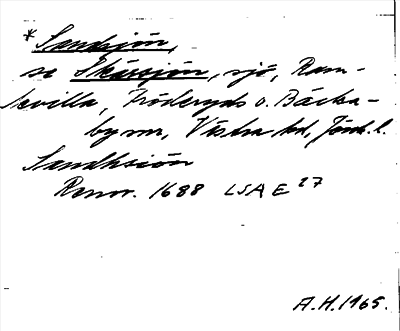 *Sandsjön,
se Skärsjön, sjö, Ram-
kvilla, Fröderyds o. Bäcka-
by snr, Västra hd, Jönk. l.
Sandhsiön
Renov. 1688 LSA E 27
A.H. 1965.